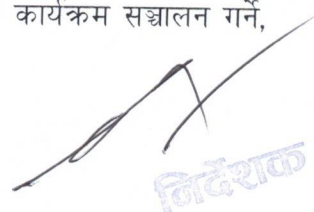 कार्यक्रम सञ्चालन गर्ने,
निर्देशक